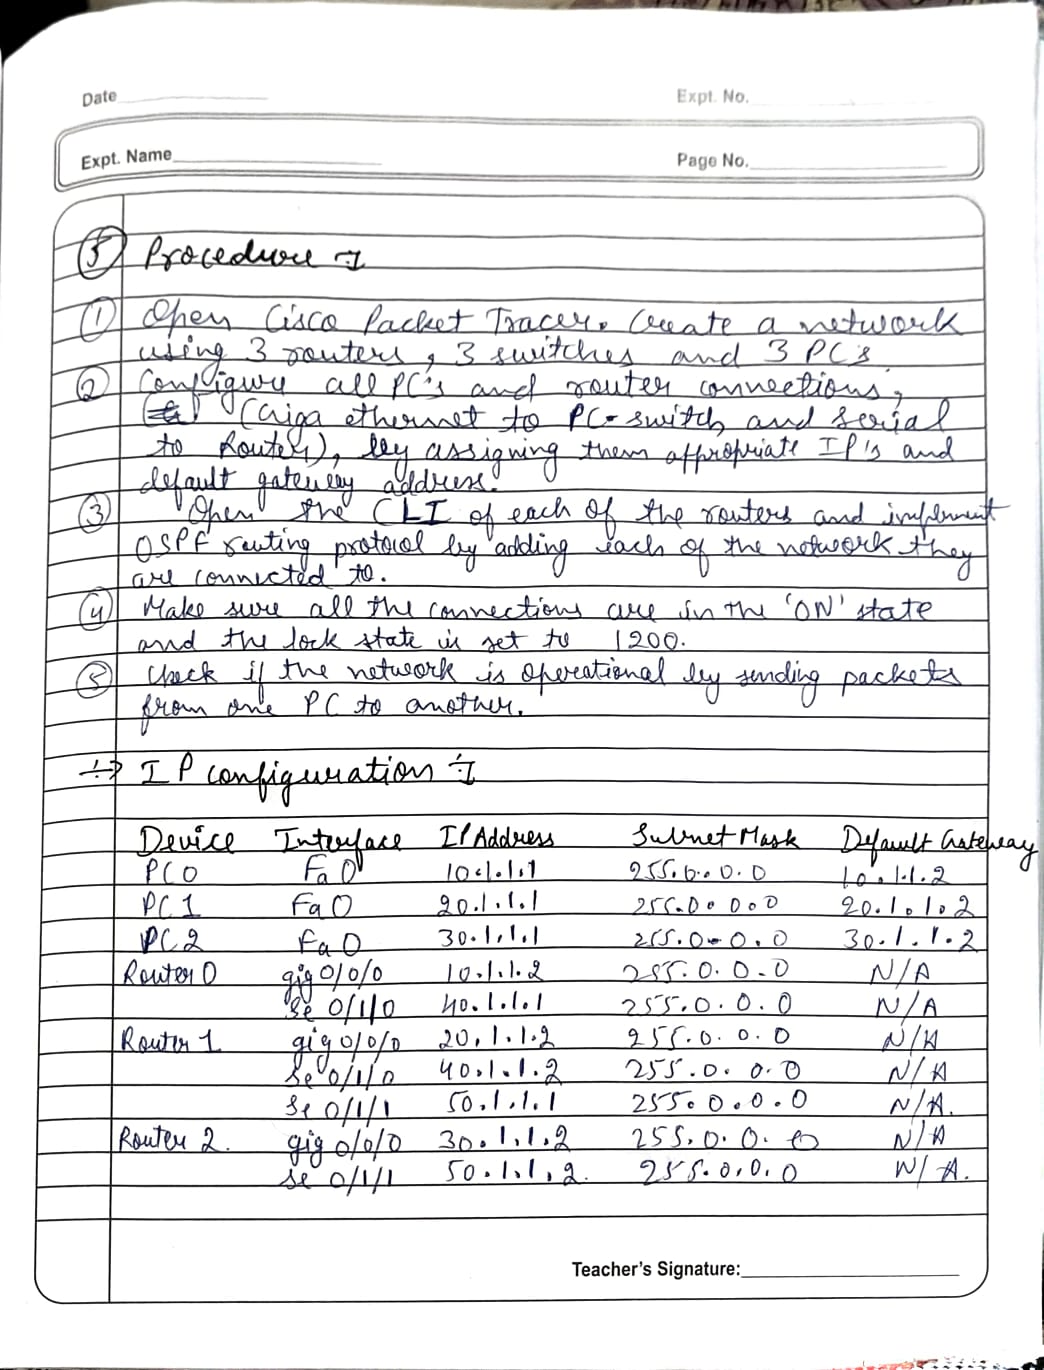 Date
Expt. No.
Expt. Name
Page No.
5 Procedure :-
1 Open Cisco Packet Tracer. Create a network
using 3 routers, 3 switches and 3 PC's
2 Configure all PC's and router connections,
(Giga ethernet to PC-switch and serial
to Routers), by assigning them appropriate IP's and
default gateway address.
3 Open the CLI of each of the routers and implement
OSPF routing protocol by adding each of the network they
are connected to.
4 Make sure all the connections are in the 'ON' state
and the lock state is set to 1200.
5 Check if the network is operational by sending packets
from one PC to another.
IP configuration :-
Device Interface IP Address Subnet Mask Default Gateway
PC0 Fa0 10.1.1.1 255.0.0.0 10.1.1.2
PC1 Fa0 20.1.1.1 255.0.0.0 20.1.1.2
PC2 Fa0 30.1.1.1 255.0.0.0 30.1.1.2
Router 0 gig 0/0/0 10.1.1.2 255.0.0.0 N/A
Se 0/1/0 40.1.1.1 255.0.0.0 N/A
Router 1 gig 0/0/0 20.1.1.2 255.0.0.0 N/A
Se 0/1/0 40.1.1.2 255.0.0.0 N/A
Se 0/1/1 50.1.1.1 255.0.0.0 N/A.
Router 2. gig 0/0/0 30.1.1.2 255.0.0.0 N/A
Se 0/1/1 50.1.1.2 255.0.0.0 N/A.
Teacher's Signature: